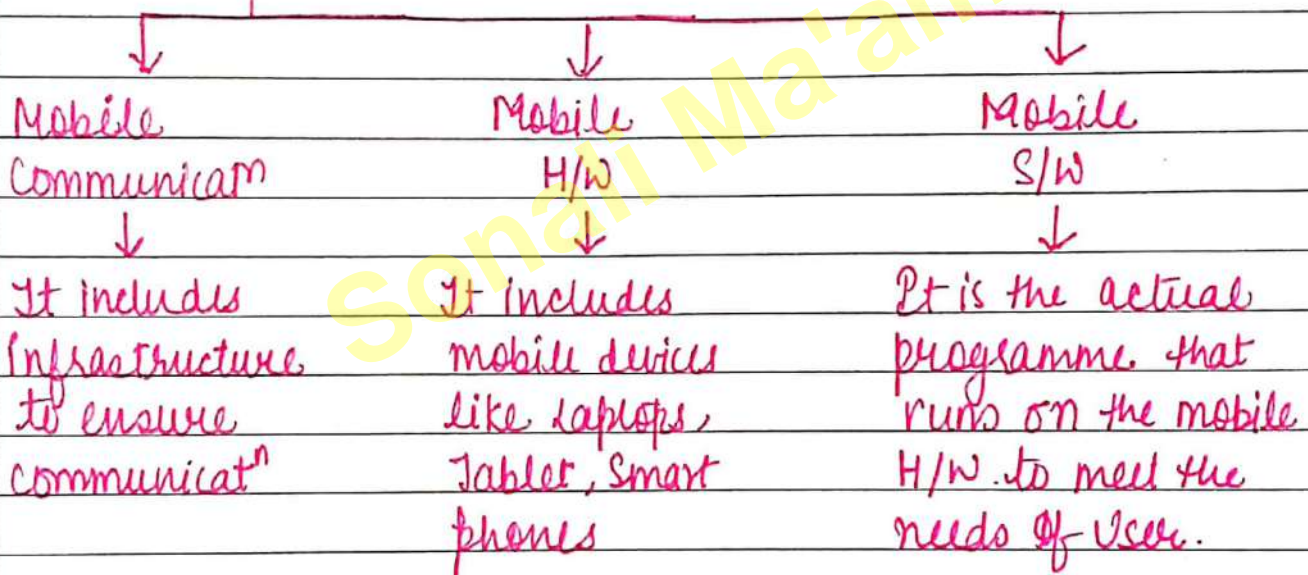 Mobile
Communicatn
↓
It includes
infrastructure
to ensure
communicatn
Mobile
H/W
↓
It includes
mobile devices
like laptops,
Tablet, Smart
phones
Mobile
S/W
↓
It is the actual
programme that
runs on the mobile
H/W. to meet the
needs of User.
Sonali Ma'am